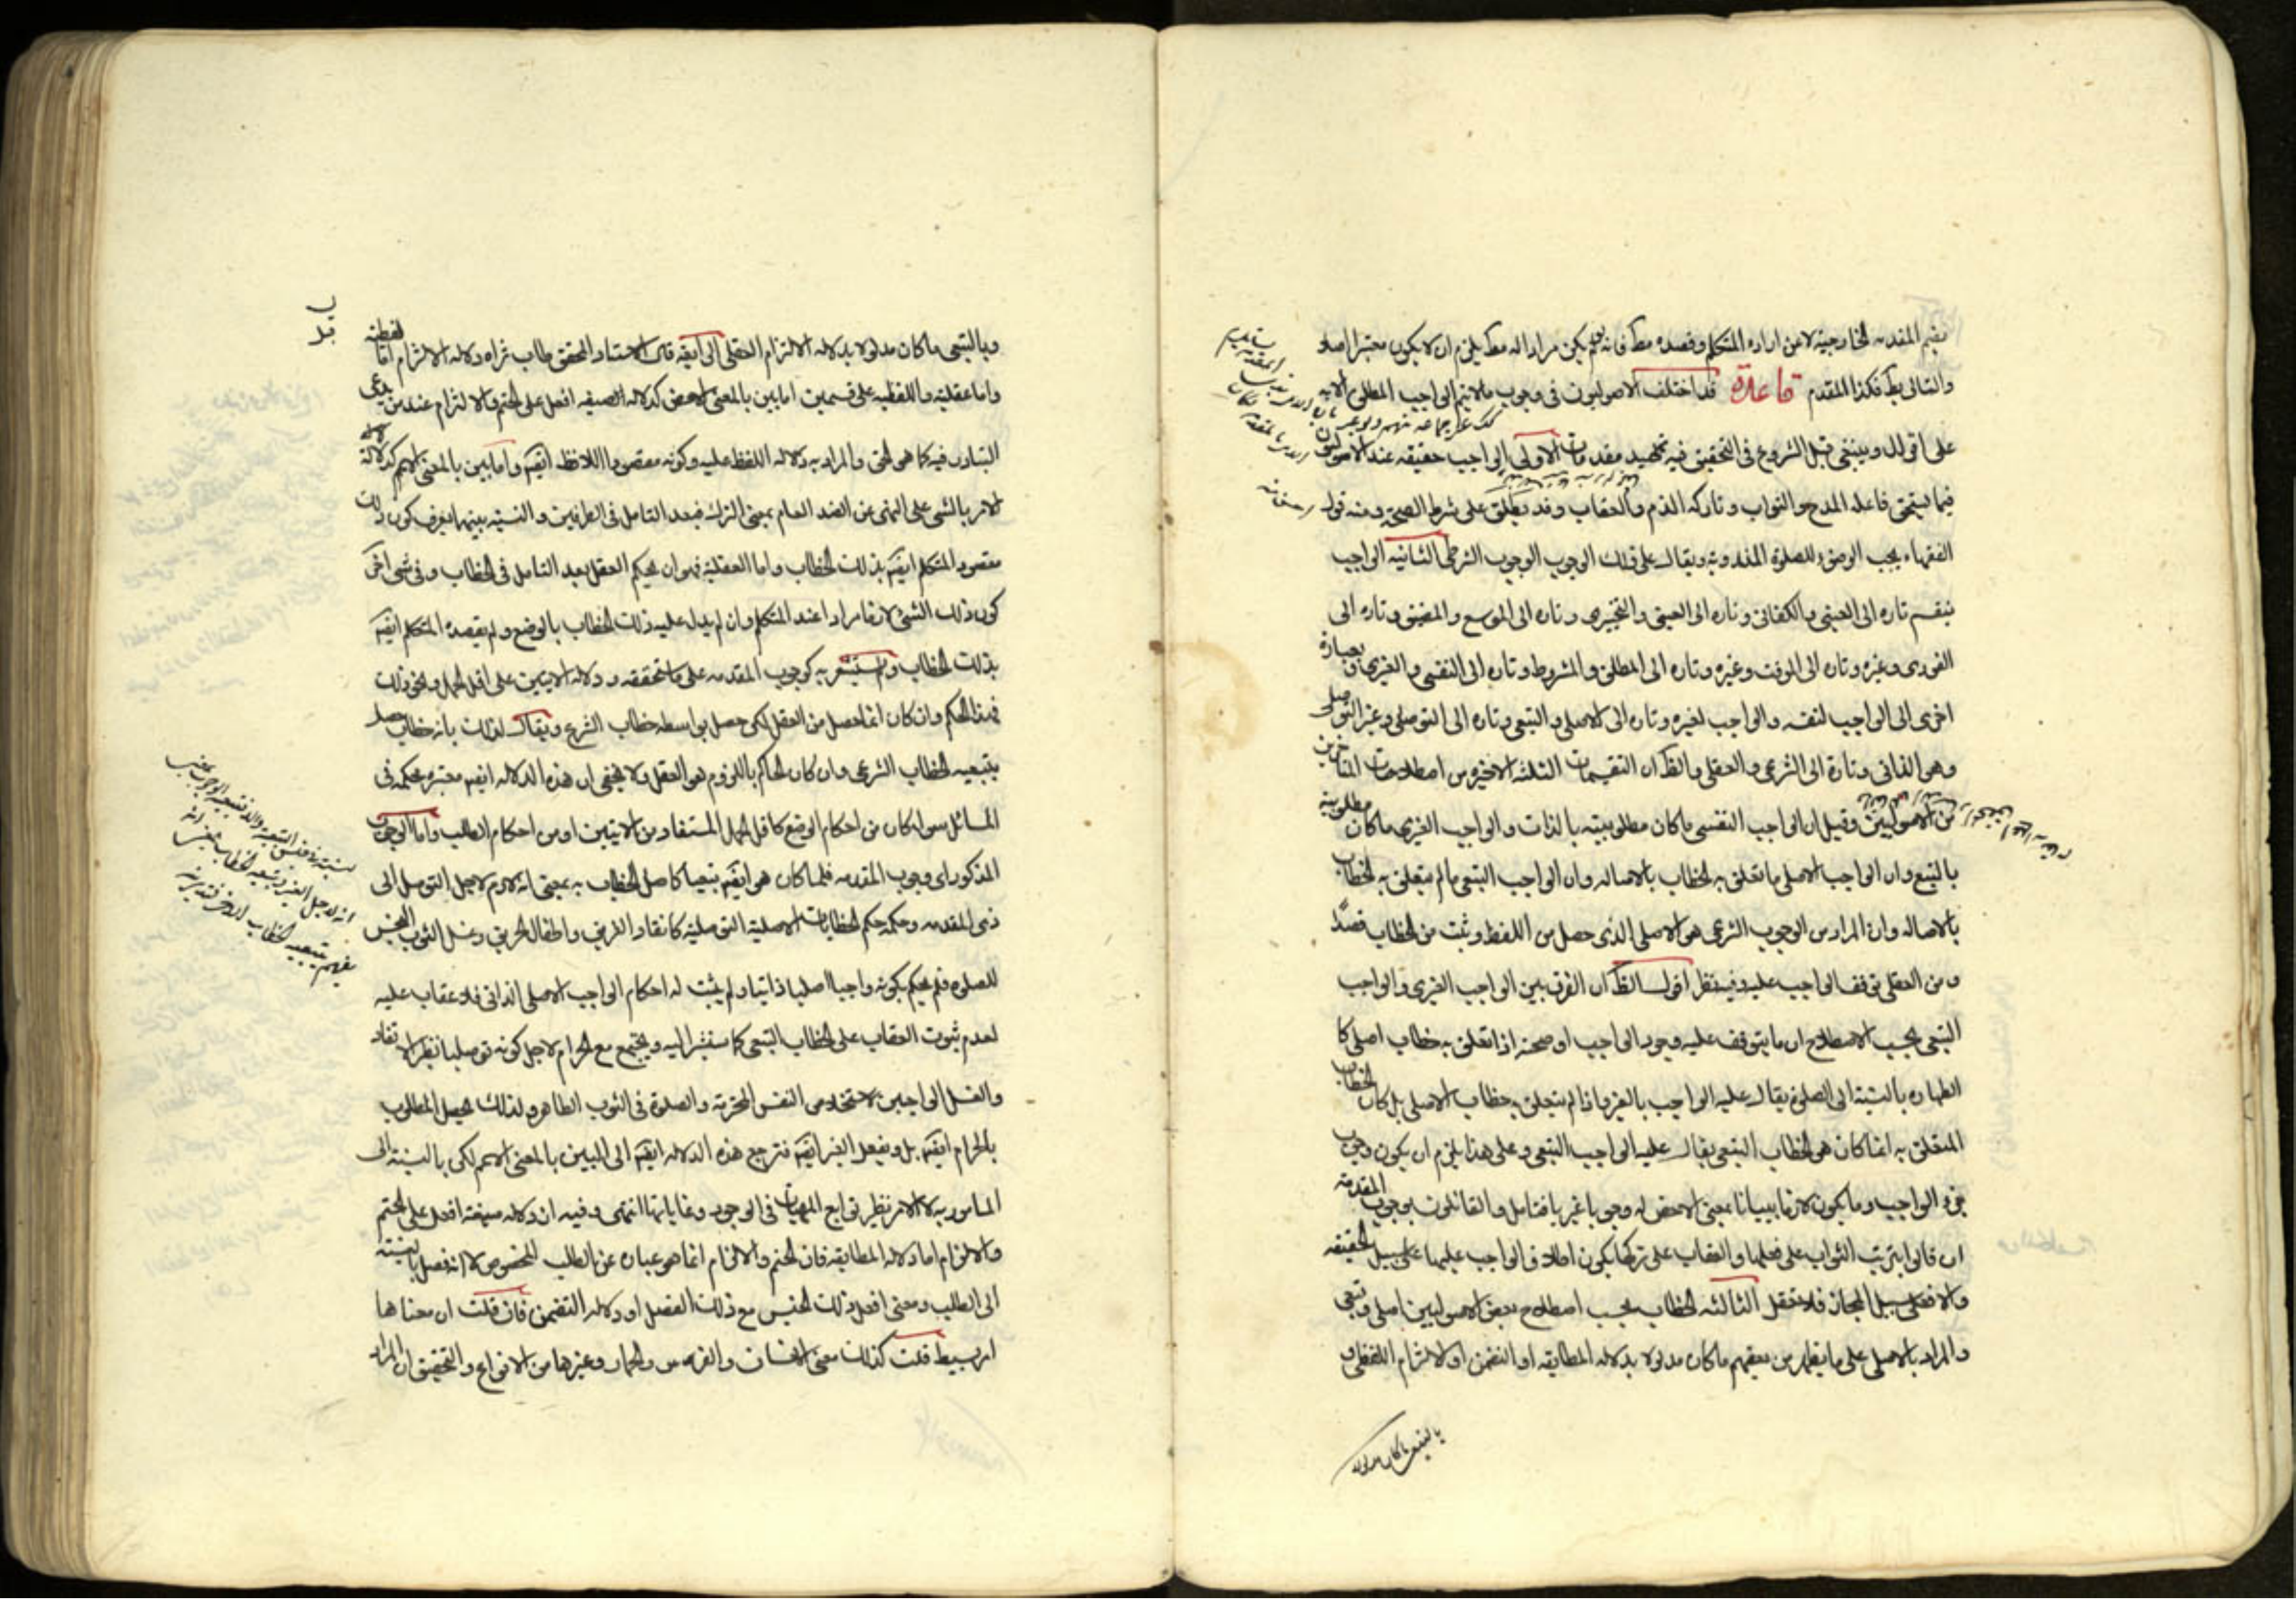 المقدمه الخارجية لا من اراده المتكلم وقصده مط فانه لو لم يكن مرادا له مط يلزم ان لا يكون معتبرا اصلا
والتالى بط فكذا المقدم قاعدة قد اختلف الاصوليون فى وجوب ما لا يتم الواجب المطلق الا به
على اقوال وينبغى قبل الشروع فى التحقيق فيه تمهيد مقدمات الاولى الواجب حقيقه عند الاصوليون
فيما يستحق فاعله المدح والثواب وتاركه الذم والعقاب وقد يطلق على شرط الصحة ومنه قول
الفقهاء يجب الوضوء للصلوة المندوبة ويقال على ذلك الوجوب الوجوب الشرطى الثانيه الواجب
ينقسم تاره الى العينى والكفائى وتاره الى العينى والتخييرى وتاره الى الموسع والمضيق وتاره الى
الفورى وغيره وتاره الى الموقت وغيره وتاره الى المطلق والمشروط وتاره الى النفسى والغيرى وبعبارة
اخرى الى الواجب لنفسه والواجب لغيره وتاره الى الاصلى والتبعى وتاره الى التوصلى وغير التوصلى
وهو الذاتى وتارة الى الشرعى والعقلى والظ ان التقسيمات الثلثه الاخيره من اصطلاحات المتاخرين
من الاصوليين وقيل ان الواجب النفسى ما كان مطلوبيته بالذات والواجب الغيرى ما كان مطلوبيته
بالتبع وان الواجب الاصلى ما تعلق به الخطاب بالاصاله وان الواجب التبعى ما لم يتعلق به الخطاب
بالاصاله وان المراد من الوجوب الشرعى هو الاصلى الذى حصل من اللفظ وثبت من الخطاب قصدًا
ومن العقلى توقف الواجب عليه وفيه نظر اقول الظ ان الفرق بين الواجب الغيرى والواجب
التبعى بحسب الاصطلاح ان ما يتوقف عليه وجود الواجب او صحته اذا تعلق به خطاب اصلى كا
الطهاره بالنسبة الى الصلوة يقال عليه الواجب بالغير واذا لم يتعلق به خطاب الاصلى بل كان الخطاب
المتعلق به انما كان هو الخطاب التبعى يقال عليه الواجب التبعى وعلى هذا يلزم ان يكون وجوب
جزء الواجب وما يكون لازما بينا بمعنى الاخص له وجوبا غيريا فتامل والقائلون بوجوب المقدمة
ان قالوا بترتب الثواب على فعلها والعقاب على تركها يكون اطلاق الواجب عليها على سبيل الحقيقه
والا فعلى سبيل المجاز فلا تغفل الثالثه الخطاب بحسب اصطلاح بعض الاصوليين اصلى وتبعى
والمراد بالاصلى على ما يظهر من بعضهم ما كان مدلولا بدلاله المطابقه او التضمن او الالتزام اللفظى و
بالتبعى ما كان مدلولا
وبالتبعى ما كان مدلولا بدلاله الالتزام العقلى الى ايقه قال الاستاد المحقق طاب ثراه دلاله الالتزام اما لفظية
واما عقلية واللفظيه على قسمين اما بين بالمعنى الاخص كدلاله الصيغه افعل على الحتم والالزام عند من يدعى
التبادر فيه كما هو الحق والمراد به دلاله اللفظ عليه وكونه مقصودا اللافظ ايضه واما بين بالمعنى الاعم كدلالة
الامر بالشى على النهى عن الضد العام بمعنى الترك فبعد التامل فى الطرفين والنسبة بينهما يعرف كون ذلك
مقصود المتكلم ايضه بذلك الخطاب واما العقلية فهو ان يحكم العقل بعد التامل فى الخطاب وفى شى اخر
كون ذلك الشى لازما مرادا عند المتكلم وان لم يدل عليه ذلك الخطاب بالوضع ولم يقصده المتكلم ايضه
بذلك الخطاب ولم يستشعر به كوجوب المقدمه على ما سنحققه ودلالة الايتين على اقل الحمل ونحو ذلك
فهذا الحكم وان كان انما حصل من العقل لكن حصل بواسطه خطاب الشرع ويقال لذلك بانه خطاب حصل
بتبعيه الخطاب الشرعى وان كان الحاكم باللزوم هو العقل ولا يخفى ان هذه الدلاله ايضه معتبره محكمه فى
المسائل سواء كان من احكام الوضع كاقل الحمل المستفاد من الايتين او من احكام الطلب واما الوجوب
المذكور اى وجوب المقدمه فلما كان هو ايضه تبعيا كاصل الخطاب به بمعنى انه لازم لاجل التوصل الى
ذى المقدمه وحكمه حكم الخطابات الاصلية التوصلية كانقاذ الغريق واطفاء الحريق وغسل الثوب النجس
للصلوة فلم يحكم بكونه واجبا اصليا ذاتيا ولم يثبت له احكام الواجب الاصلى الذاتى فلا عقاب عليه
لعدم ثبوت العقاب على الخطاب التبعى كما سنشير اليه ويجتمع مع الحرام لاجل كونه توصليا نظير الانقاذ
والغسل الواجبين لاستخلاص النفس المحترمة والصلوة فى الثوب الطاهر ولذلك يحصل المطلوب
بالحرام ايضه بل وبفعل الغير ايضه فترجع هذه الدلاله ايضه الى البين بالمعنى الاعم لكن بالنسبة الى
المامور به لا الامر نظير توابع المهيات فى الوجود وغاياتها انتهى وفيه ان دلاله صيغة افعل على الحتم
والالزام اما دلاله المطابقه فان الحتم والالزام انما هو عباره عن الطلب المخصوص لا انه فصل بالنسبة
الى الطلب ومعنى افعل ذلك الجنس مع ذلك الفصل او دلاله التضمن فان قلت ان معناها
امر بسيط قلت كذلك معنى الانسان والفرس والحمار وغيرها من الانواع والتحقيق ان المراد